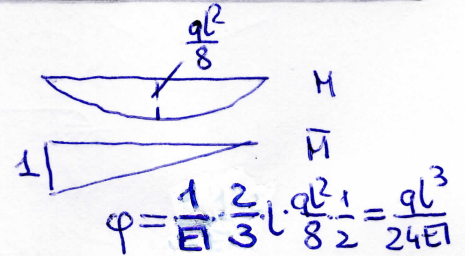 ql²/8
M
1
M̅
φ = 1/EI · 2/3 · l · ql²/8 · 1/2 = ql³/24EI